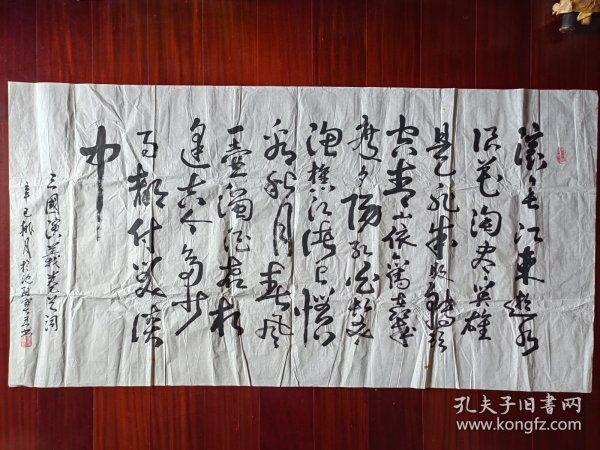 滚々长江東逝水
浪花淘尽英雄
是非成败转头
空青山依舊在几
度夕阳红白发
渔樵江渚上惯
看秋月春风
一壶浊酒喜相
逢古今多少
事都付笑谈
中
三國演義
辛巳桃月於沈阳
孔夫子旧书网
www.kongfz.com